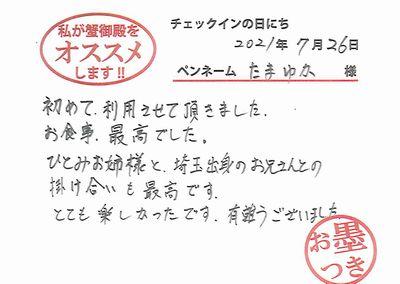 私が蟹御殿を
オススメ
します!!
チェックインの日にち
2021年7月26日
ペンネーム たまゆか 様
初めて、利用させて頂きました。
お食事、最高でした。
ひとみお姉様と、埼玉出身のお兄さんとの
掛け合いも最高です。
とても楽しかったです。有難うございました。
お墨
つき